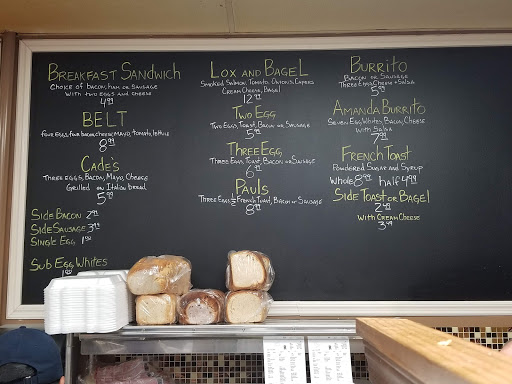 Breakfast Sandwich
Choice of bacon, ham or sausage
with two eggs and cheese
4.99
BELT
four eggs, four bacon, cheese, mayo, tomato, lettuce
8.99
Cade's
Three eggs, Bacon, Mayo, Cheese
Grilled on Italian bread
5.99
Side Bacon 2.99
Side Sausage 3.99
Single Egg 1.50
Sub Egg Whites
Lox and Bagel
Smoked Salmon, Tomato, Onions, Capers
Cream Cheese, Bagel
12.99
Two Egg
Two Eggs, Toast, Bacon or Sausage
5.99
Three Egg
Three Eggs, Toast, Bacon or Sausage
6.99
Pauls
Three Eggs ½ French Toast, Bacon or Sausage
8.99
Burrito
Bacon or Sausage
Three Eggs, Cheese + Salsa
5.99
Amanda Burrito
Seven Egg Whites, Bacon, Cheese
with Salsa
7.99
French Toast
Powdered Sugar and Syrup
Whole 8.99 half 4.99
Side Toast or Bagel
2.49
with Cream Cheese
3.49